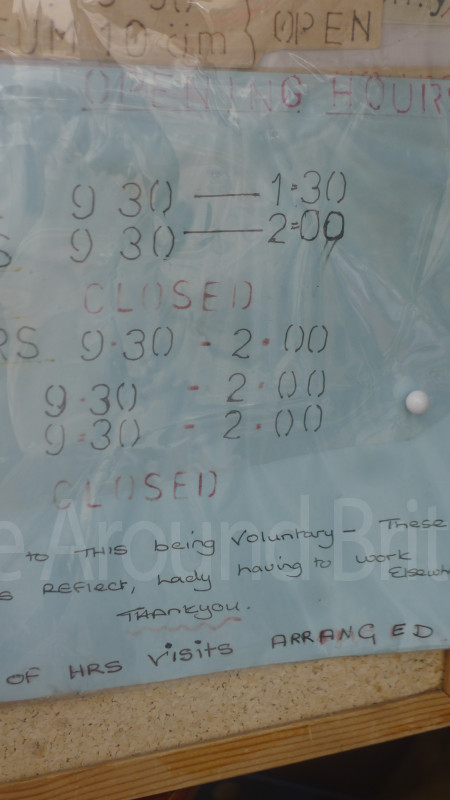 10 am } OPEN
OPENING HOURS
9 30 — 1.30
S 9 30 — 2=00
CLOSED
RS 9.30 - 2.00
9.30 - 2.00
9.30 - 2.00
CLOSED
to THIS being Voluntary - These
s REFLECT, hady having to work
Elsewh
THANKYOU.
OF HRS visits ARRANGED
e Around Brit